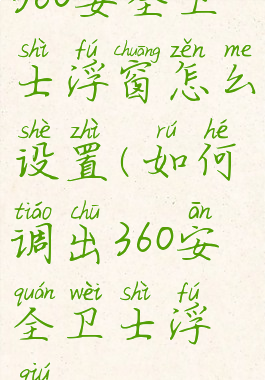 360安全卫
shì fú chuāng zěn me
士浮窗怎么
shè zhì rú hé
设置(如何
tiáo chū ān
调出360安
quán wèi shì fú
全卫士浮
qiú